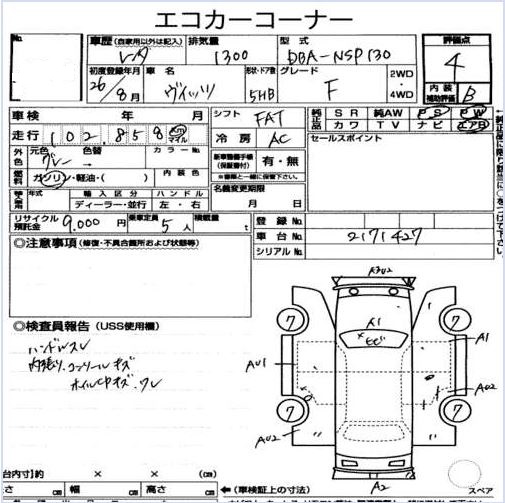 エコカーコーナー
No.
車歴 (自家用以外は記入) 排気量 型式 評価点
レンタ 1300 DBA-NSP130 4
初度登録年月 車名 形状・ドア数 グレード 2WD ・ 4WD 内装 補助評価
26年 8月 ヴィッツ 5HB F B
車検 年 月 シフト FAT
純正品 SR 純AW PS PW
カワ TV ナビ エアB
走行 102,858 Km マイル 冷房 AC
セールスポイント
外色 元色 色替 カラーNo.
グレー
新車整備手帳 (保証書付) 有・無
※書類と一緒に保管下さい。
燃料 ガソリン・軽油・( ) 内装色
名義変更期限 月 日
輸入車用 年式 輸入区分 ハンドル
ディーラー・並行 左・右
リサイクル預託金 9,000円 乗車定員 5人 積載量 t
登録No.
車台No. 2171427
シリアルNo.
◎注意事項 (修復・不具合箇所および状態等)
◎検査員報告 (USS使用欄)
ハンドルスレ
内張り.コンソールキズ
ホイルCPキズ.ワレ
A3U2
A1
7 7
A1
AU1
AU2
7 7
AU2
A2
スペア
荷台内寸)約 × × (cm)
長さ cm 幅 cm 高さ cm ←(車検証上の寸法)